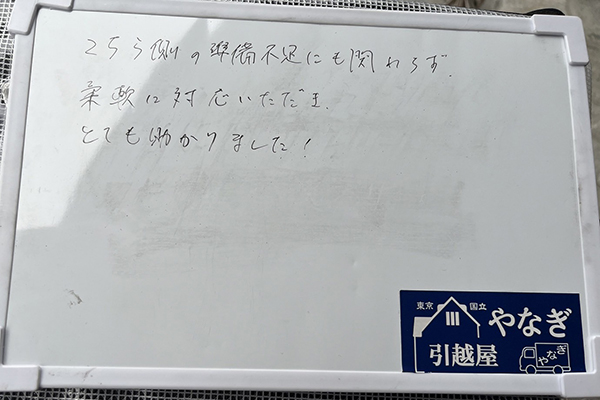 こちら側の準備不足にも関わらず、
柔軟に対応いただき、
とても助かりました!
東京 国立
やなぎ
引越屋
やなぎ